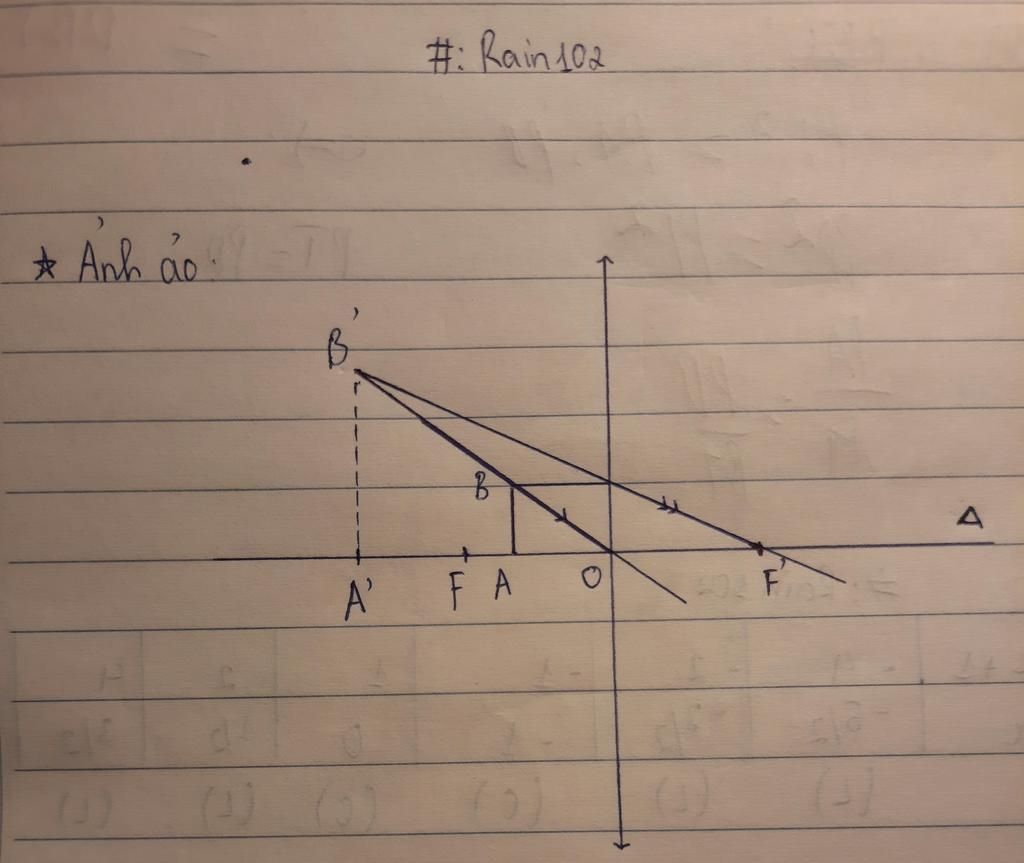 #: Rain102
★ Ảnh ảo:
B'
B
Δ
A' F A O F'